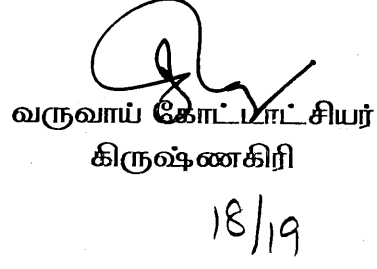 வருவாய் கோட்டாட்சியர்
கிருஷ்ணகிரி
18/19